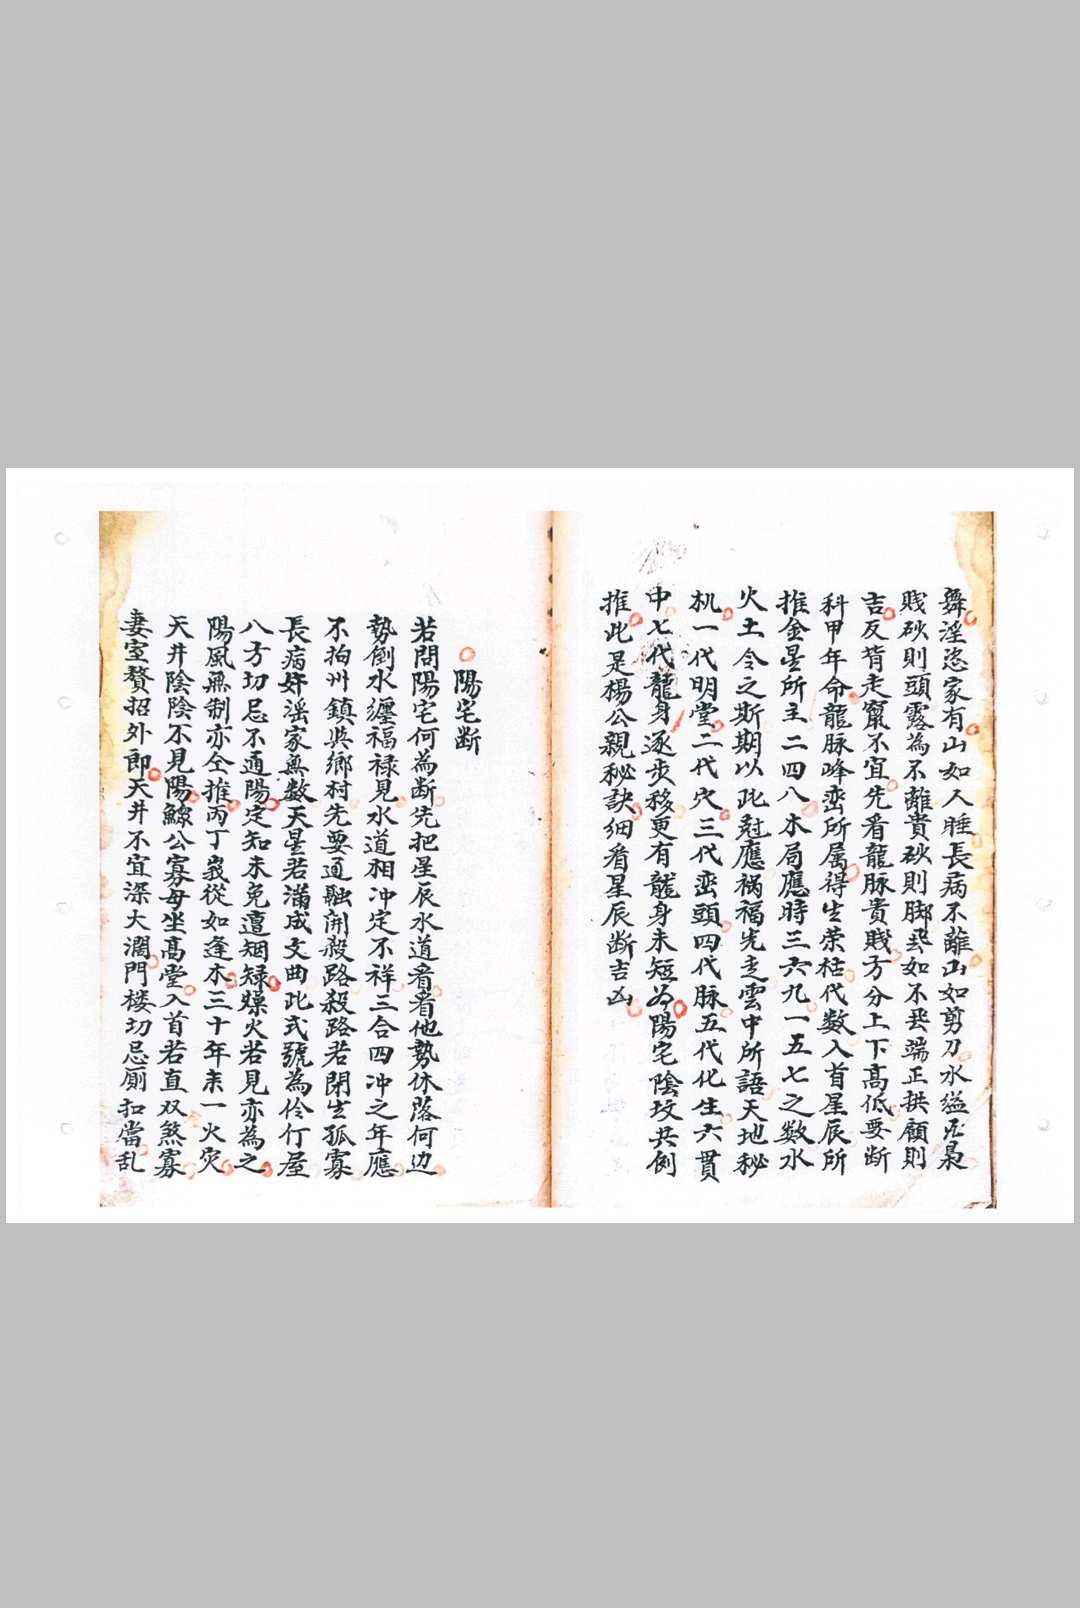 舞淫恣家有山如人睡長病不離山如剪刀水溢屍梟
賤砂則頭露為不離貴砂則脚飛如不丢端正拱顧則
吉反背走竄不宜先看龍脉貴賤方分上下高低要断
科甲年命龍脉峰巒所属得生荣枯代数入首星辰所
推金星所主二四八木局應時三六九一五七之数水
火土令之斯期以此尅應祸福先走雲中所語天地秘
机一代明堂二代穴三代巒頭四代脉五代化生六貫
中七代龍身逐步移更有龍身未短為陽宅陰坟共例
推此是楊公親秘訣细看星辰断吉凶
陽宅断
若問陽宅何為断先把星辰水道看看他勢休落何边
勢倒水纒福禄見水道相冲定不祥三合四冲之年應
不拘州鎮與鄉村先要通融開殺路殺路若閉生孤寡
長病奸淫家無数天星若滿成文曲此式號為伶仃屋
八方切忌不通陽定知未免遭烟
陽風無制亦仝推丙丁嵗從如逢木三十年来一火灾
天井陰陰不見陽鰥公寡母坐高堂入首若直双煞寡
妻室贅招外郎天井不宜深大濶門楼切忌廁扣當乱